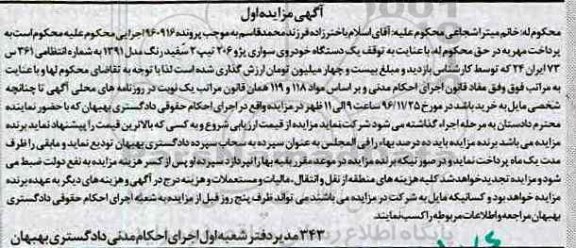 آگهی مزایده اول
محکوم له: خانم میترا شجاعی محکوم علیه: آقای اسلام باختر زاده فرزند محمد قاسم به موجب پرونده ۹۶۰۹۱۶ اجرایی محکوم علیه محکوم است به
پرداخت مهریه در حق محکوم له، با عنایت به توقف یک دستگاه خودروی سواری پژو ۲۰۶ تیپ ۲ سفید رنگ مدل ۱۳۹۱ به شماره انتظامی ۳۶۱ س
۷۳ ایران ۲۴ که توسط کارشناس بازدید و مبلغ بیست و چهار میلیون تومان ارزش گذاری شده است لذا با توجه به تقاضای محکوم لها و با عنایت
به مراتب فوق وفق مفاد قانون اجرای احکام مدنی و بر اساس مواد ۱۱۸ و ۱۱۹ همان قانون مراتب یک نوبت در روزنامه های محلی آگهی تا چنانچه
شخصی مایل به خرید باشد در مورخ ۹۶/۱۱/۲۵ ساعت ۹ الی ۱۱ ظهر در مزایده واقع در اجرای احکام حقوقی دادگستری بهبهان که با حضور نماینده
محترم دادستان به مرحله اجراء گذاشته می شود شرکت نماید مزایده از قیمت ارزیابی شروع و به کسی که بالاترین قیمت را پیشنهاد نماید برنده
مزایده می باشد برنده مزایده باید ده درصد بهاء را فی المجلس به عنوان سپرده به حساب سپرده دادگستری بهبهان تودیع نماید و مابقی را ظرف
مدت یک ماه پرداخت نماید و در صورتیکه برنده مزایده در موعد مقرر بقیه بها را نپردازد سپرده او پس از کسر هزینه مزایده به نفع دولت ضبط می
شود و مزایده تجدید خواهد شد کلیه هزینه های منطقه از نقل و انتقال، مالیات و مستعملات و هزینه درج در آگهی و هزینه های دیگر به عهده برنده
مزایده خواهد بود و کسانیکه مایل به شرکت در مزایده می باشند می تواند ظرف پنج روز قبل از مزایده به شعبه اجرای احکام حقوقی دادگستری
بهبهان مراجعه و اطلاعات مربوطه را کسب نمایند.
۳۴۳ مدیر دفتر شعبه اول اجرای احکام مدنی دادگستری بهبهان